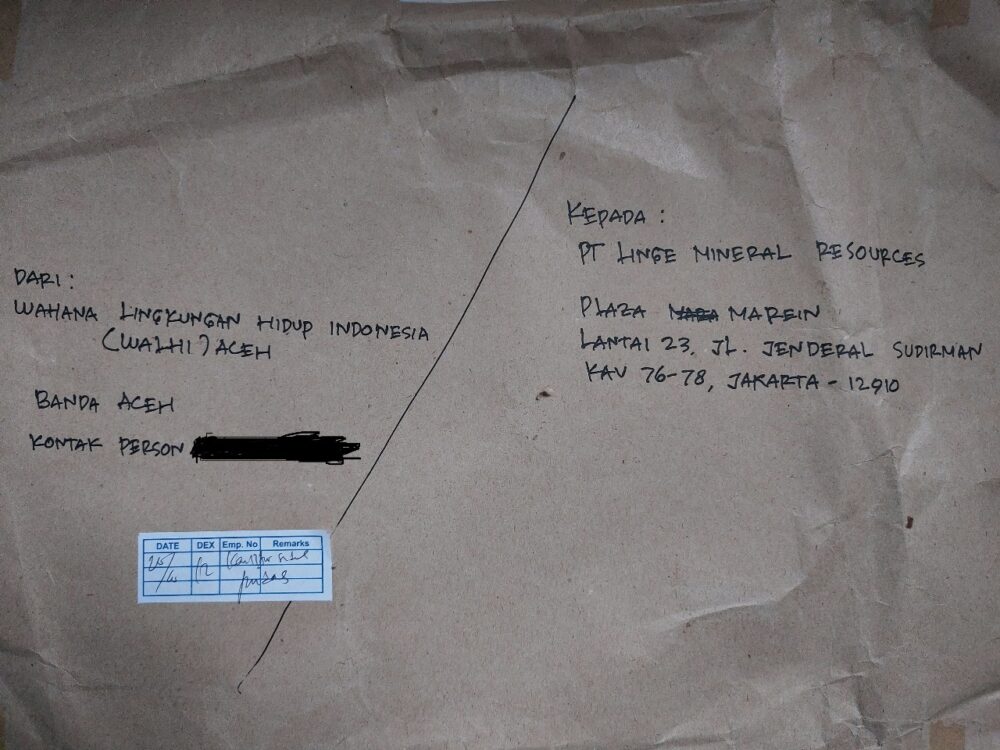 DARI :
WAHANA LINGKUNGAN HIDUP INDONESIA
(WALHI) ACEH
BANDA ACEH
KONTAK PERSON
KEPADA :
PT LINGE MINERAL RESOURCES
PLAZA MAREIN
LANTAI 23, JL. JENDERAL SUDIRMAN
KAV 76-78, JAKARTA - 12910
DATE DEX Emp. No Remarks
12 pindah